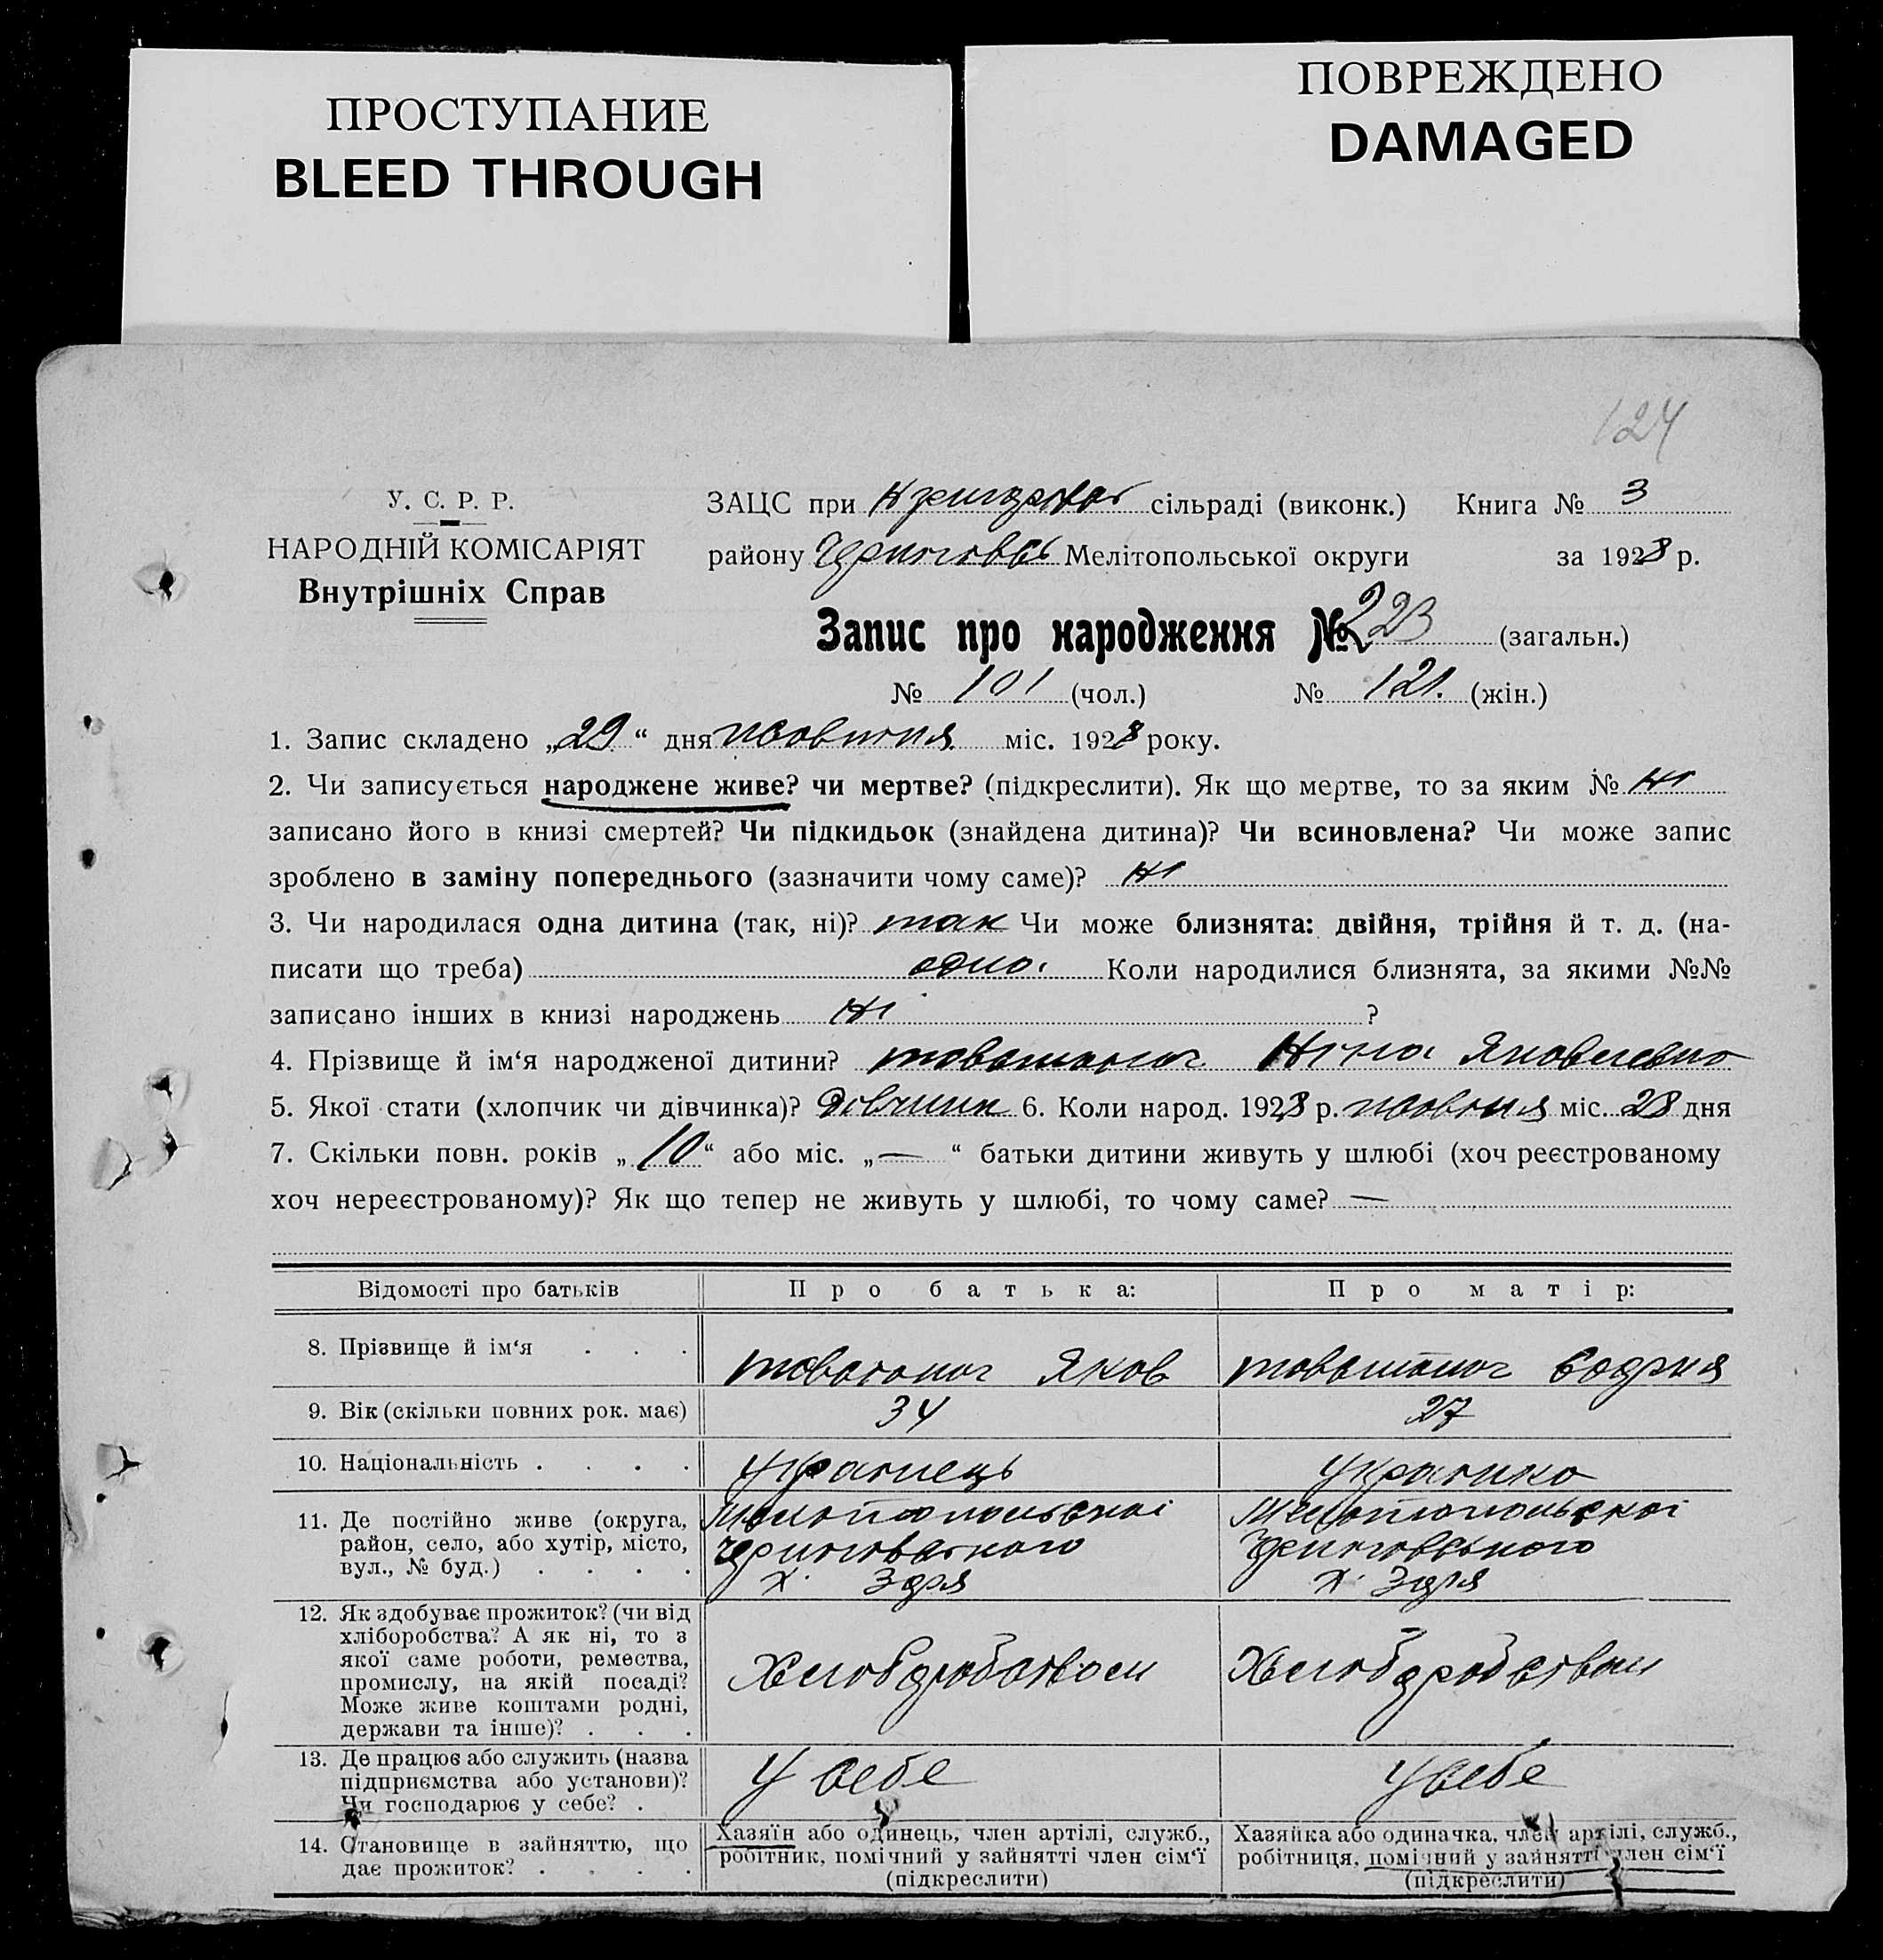 ПРОСТУПАНИЕ
BLEED THROUGH
ПОВРЕЖДЕНО
DAMAGED
124
У. С. Р. Р.
НАРОДНІЙ КОМІСАРІЯТ
Внутрішніх Справ
ЗАЦС при сільраді (виконк.) Книга № 3
району Мелітопольської округи за 1928 р.
Запис про народження № 223 (загальн.)
№ 101 (чол.) № 121. (жін.)
1. Запис складено „29“ дня жовтня міс. 1928 року.
2. Чи записується народжене живе? чи мертве? (підкреслити). Як що мертве, то за яким № Ні
записано його в книзі смертей? Чи підкидьок (знайдена дитина)? Чи всиновлена? Чи може запис
зроблено в заміну попереднього (зазначити чому саме)? Ні
3. Чи народилася одна дитина (так, ні)? так Чи може близнята: двійня, трійня й т. д. (на-
писати що треба) одно. Коли народилися близнята, за якими №№
записано інших в книзі народжень Ні ?
4. Прізвище й ім‘я народженої дитини? Ніна Яковлевна
5. Якої стати (хлопчик чи дівчинка)? Дівчинк 6. Коли народ. 1928 р. жовтня міс. 28 дня
7. Скільки повн. років „10“ або міс. „—“ батьки дитини живуть у шлюбі (хоч реєстрованому
хоч нереєстрованому)? Як що тепер не живуть у шлюбі, то чому саме? —
Відомості про батьків Про батька: Про матір:
8. Прізвище й ім‘я . . . Яков
9. Вік (скільки повних рок. має) 34 27
10. Національність . . . . Українець Українка
11. Де постійно живе (округа,
район, село, або хутір, місто,
вул., № буд.) . . . .
Мелітопольської
х. Зоря
Мелітопольської
х. Зоря
12. Як здобуває прожиток? (чи від
хліборобства? А як ні, то з
якої саме роботи, ремества,
промислу, на якій посаді?
Може живе коштами родні,
держави та інше)? . . .
Хліборобством
Хліборобством
13. Де працює або служить (назва
підприємства або установи)?
Чи господарює у себе? .
У себе
У себе
14. Становище в зайняттю, що
дає прожиток? . . . .
Хазяїн або одинець, член артілі, служб.,
робітник, помічний у зайнятті член сім‘ї
(підкреслити)
Хазяйка або одиначка, член артілі, служб.,
робітниця, помічний у зайнятті член сім‘ї
(підкреслити)